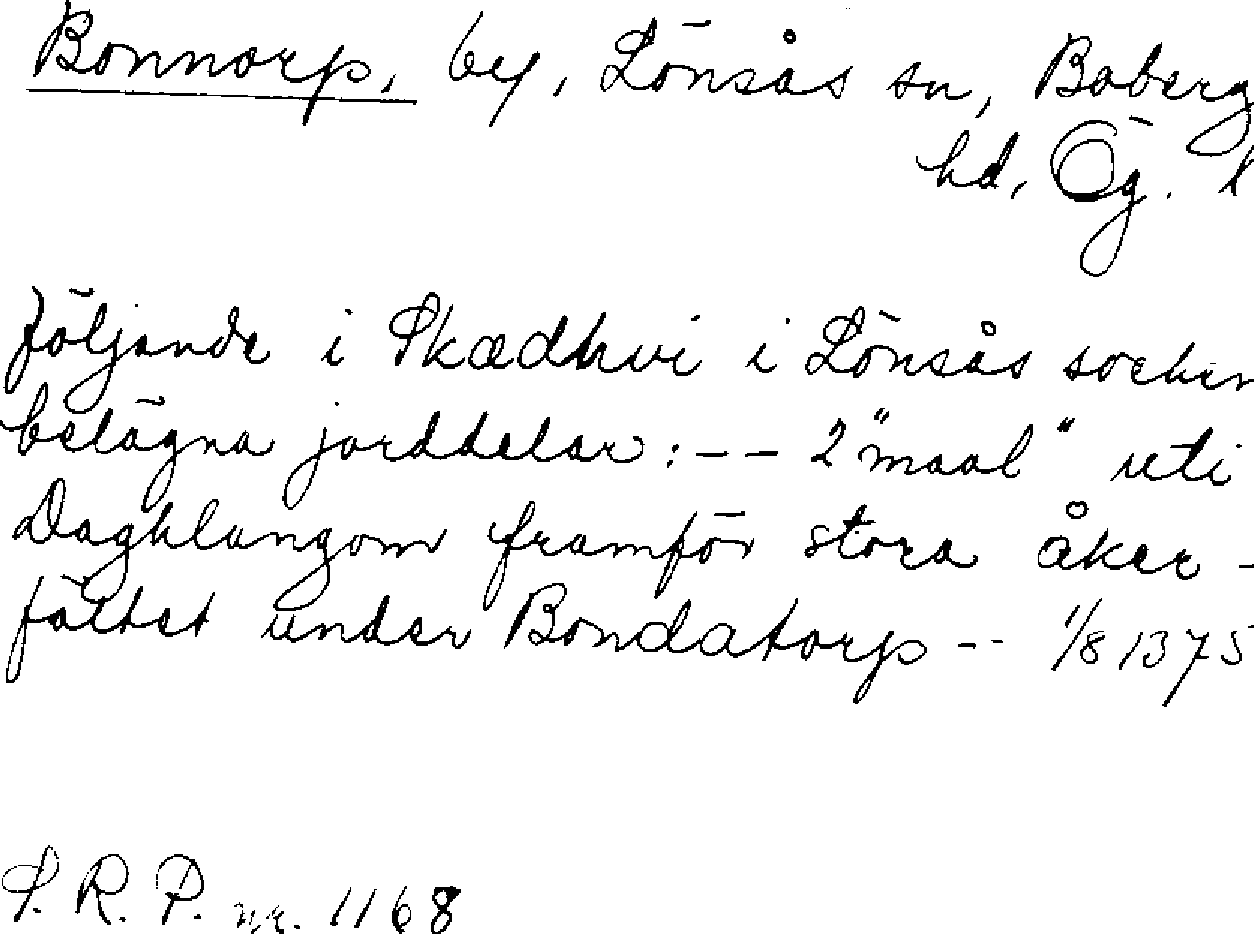 Bonnorp, by, Lönsås sn, Boberg
hd, Ög. l
följande i Skædhvi i Lönsås socken
belägna jorddelar: -- 2 "maal" uti
Daghlangom framför stora åker-
fältet under Bondatorp -- 1/8 1375
S. R. P. nr. 1168